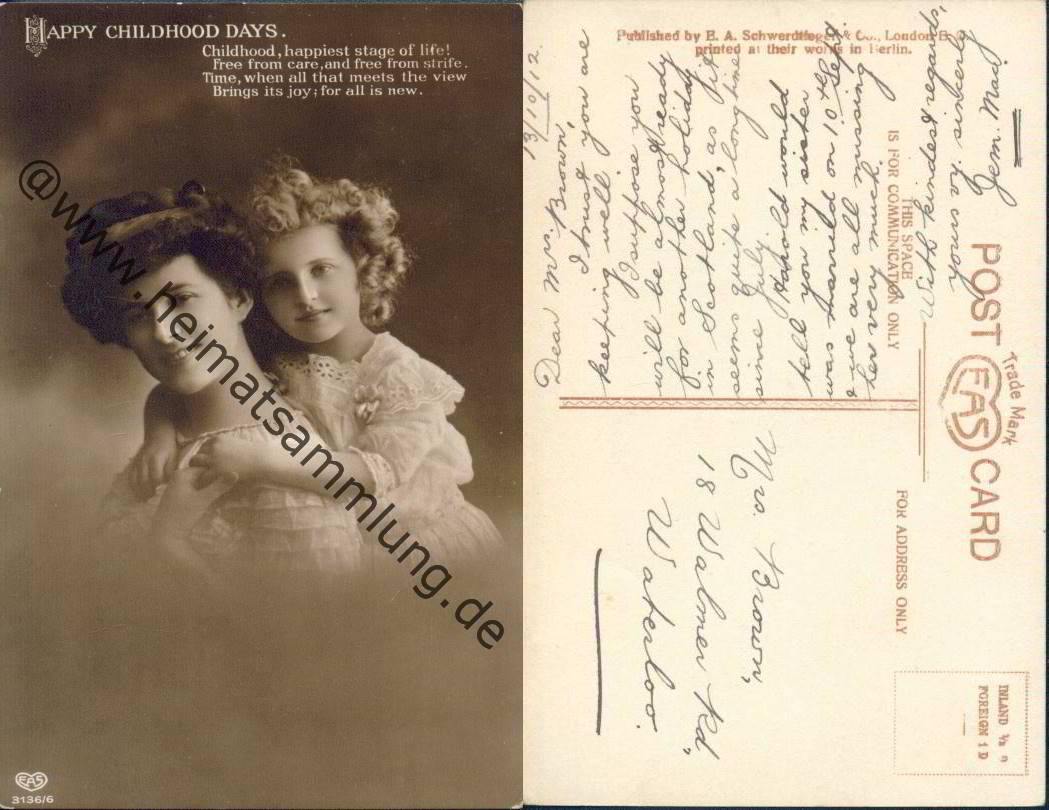 HAPPY CHILDHOOD DAYS.
Childhood, happiest stage of life!
Free from care, and free from strife.
Time, when all that meets the view
Brings its joy; for all is new.
@www.heimatsammlung.de
EAS
3136/6
Published by E. A. Schwerdtfeger & Co., London E.
printed at their works in Berlin.
POST CARD
Trade Mark
EAS
THIS SPACE
IS FOR COMMUNICATION ONLY
FOR ADDRESS ONLY
INLAND ½ D
FOREIGN 1 D
13/10/12.
Dear Mrs. Brown,
I trust you are
keeping well.
I suppose you
will be almost ready
for another holiday
in Scotland, as it
seems quite a long time
since July.
Harold would
tell you my sister
was married on 10th Sept.
& we are all missing
her so very much.
With kindest regards,
Yours sincerely
Jem. May
Mrs. Brown,
18 Walmer Rd,
Waterloo.